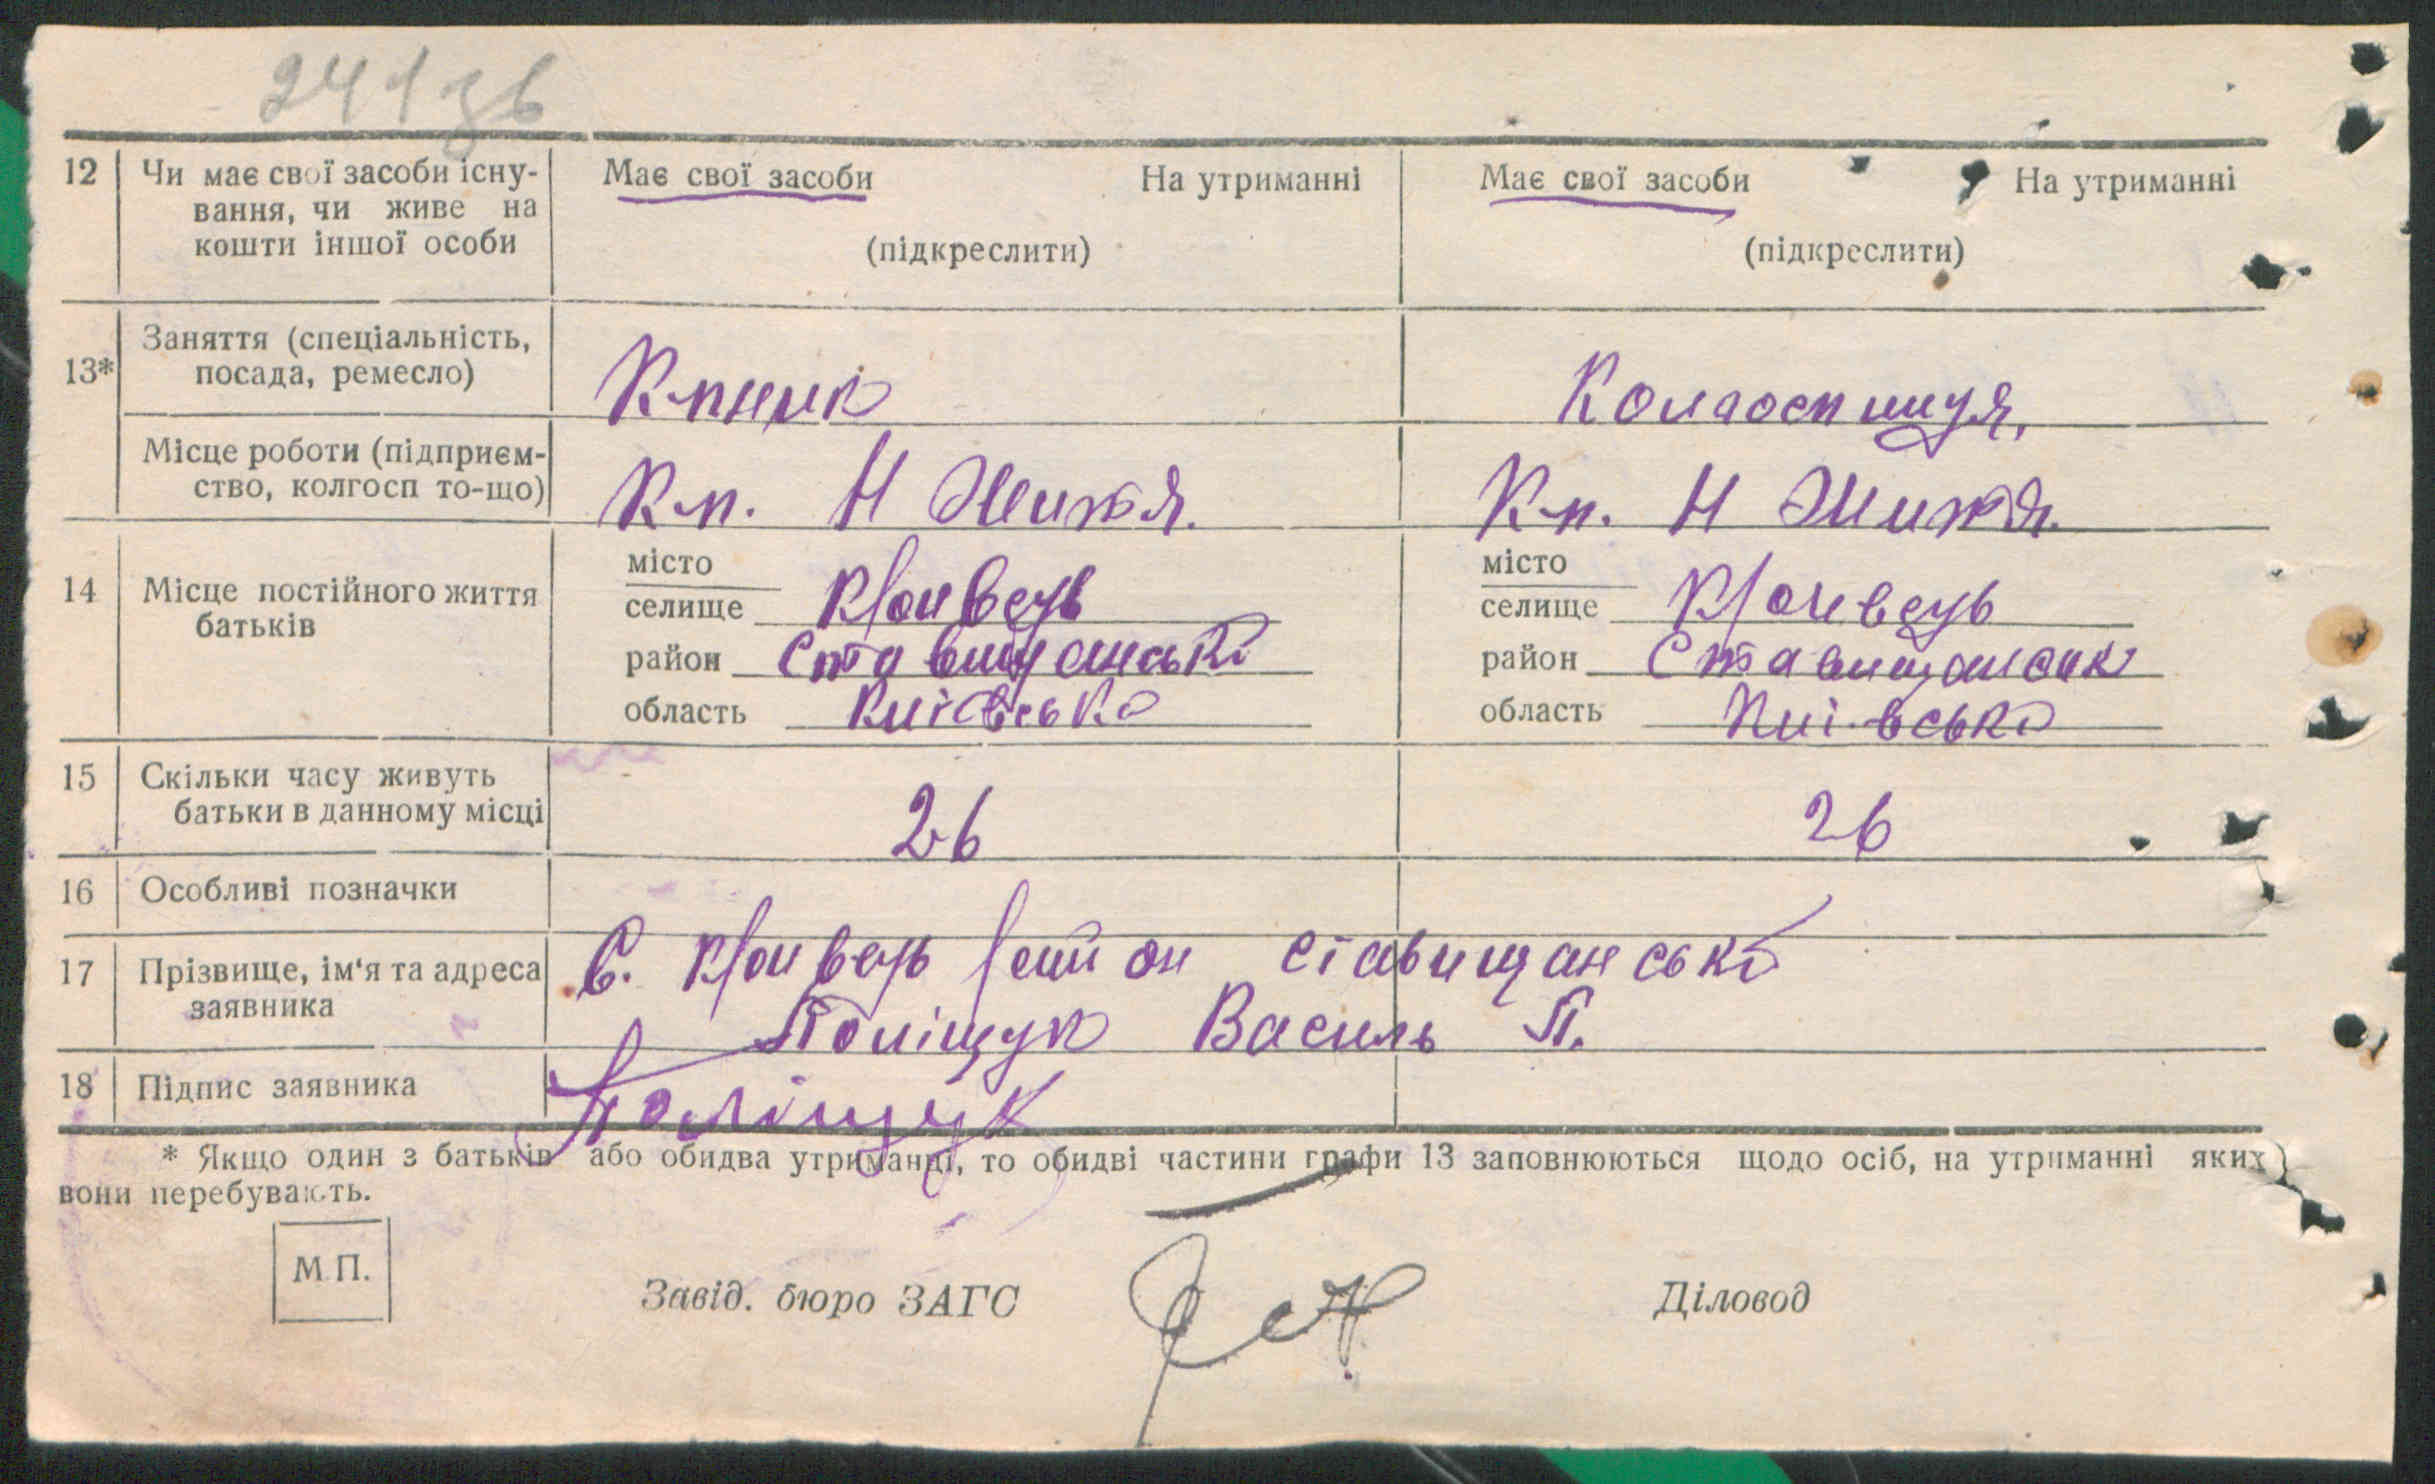 241зв
12 Чи має свої засоби існу- Має свої засоби На утриманні Має свої засоби На утриманні
вання, чи живе на
кошти іншої особи (підкреслити) (підкреслити)
Заняття (спеціальність,
13* посада, ремесло) Кпник Колгоспниця,
Місце роботи (підприєм-
ство, колгосп то-що) Кп. Н Життя. Кп. Н Життя.
місто місто
14 Місце постійного життя селище Кривець селище Кривець
батьків район Ставищанські район Ставищанськ
область Київсько область Київсько
15 Скільки часу живуть
батьки в данному місці 26 26
16 Особливі позначки
17 Прізвище, ім'я та адреса С. Кривець район Ставищанські
заявника Поліщук Василь П.
18 Підпис заявника Поліщук
* Якщо один з батьків або обидва утриманці, то обидві частини графи 13 заповнюються щодо осіб, на утриманні яких
вони перебувають.
М.П.
Завід. бюро ЗАГС Діловод